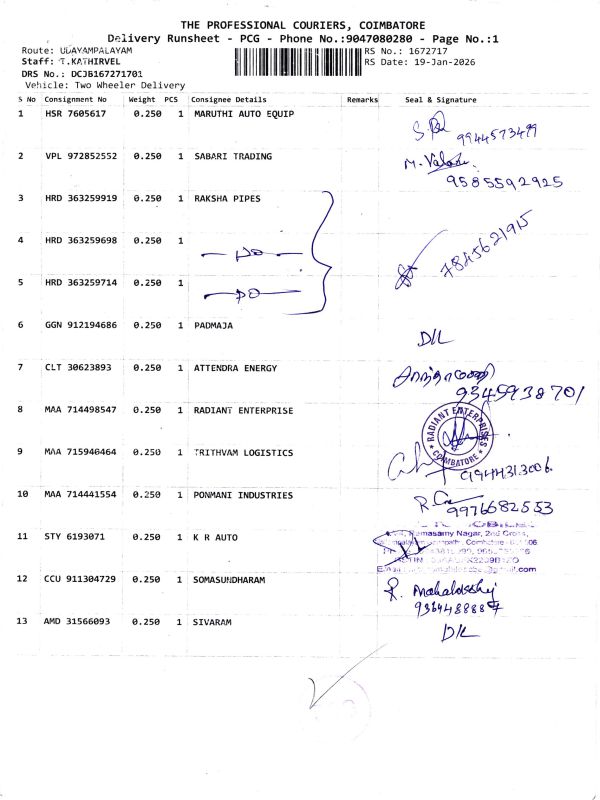 THE PROFESSIONAL COURIERS, COIMBATORE
Delivery Runsheet - PCG - Phone No.:9047080280 - Page No.:1
Route: UDAYAMPALAYAM
RS No.: 1672717
Staff: T.KATHIRVEL
RS Date: 19-Jan-2026
DRS No.: DCJB167271701
Vehicle: Two Wheeler Delivery
S No Consignment No Weight PCS Consignee Details Remarks Seal & Signature
1 HSR 7605617 0.250 1 MARUTHI AUTO EQUIP
9944573499
2 VPL 972852552 0.250 1 SABARI TRADING
9585592925
3 HRD 363259919 0.250 1 RAKSHA PIPES
4 HRD 363259698 0.250 1
7845621915
5 HRD 363259714 0.250 1
6 GGN 912194686 0.250 1 PADMAJA
D/L
7 CLT 30623893 0.250 1 ATTENDRA ENERGY
9345938701
8 MAA 714498547 0.250 1 RADIANT ENTERPRISE
RADIANT ENTERPRISES
COIMBATORE
9 MAA 715940464 0.250 1 TRITHVAM LOGISTICS
9944313006
10 MAA 714441554 0.250 1 PONMANI INDUSTRIES
9976682553
11 STY 6193071 0.250 1 K R AUTO
Ramasamy Nagar, 2nd Cross,
12 CCU 911304729 0.250 1 SOMASUNDHARAM
13 AMD 31566093 0.250 1 SIVARAM
D/L